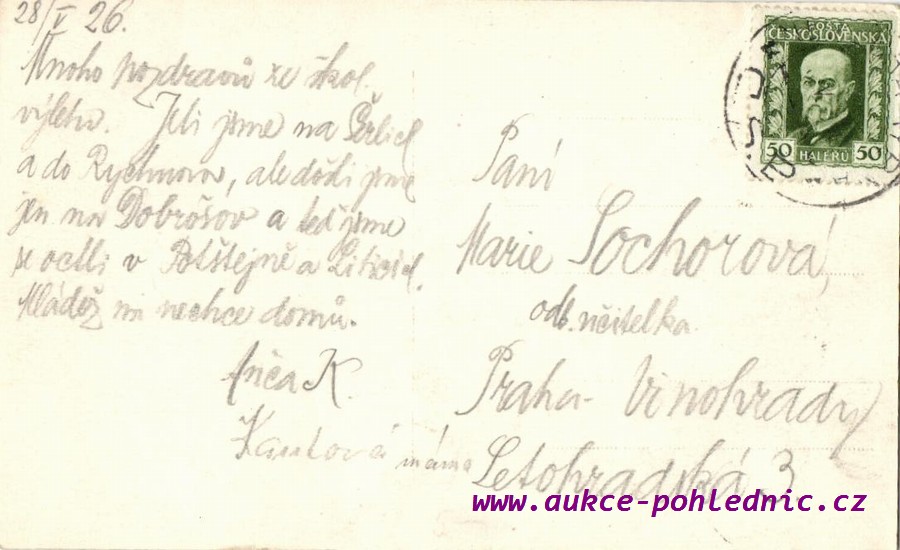 28/V 26.
Mnoho pozdravů ze škol.
výletu. Jeli jsme na Šerlich
a do Rychnova, ale došli jsme
jen na Dobrošov a teď jsme
se octli v Potštejně a Liticích.
Mládež mi nechce domů.
Anča K.
máma
POŠTA
ČESKOSLOVENSKÁ
50 HALÉŘŮ 50
Paní
Marie Sochorová,
odb. učitelka
Praha - Vinohrady
Letohradská 3.
www.aukce-pohlednic.cz